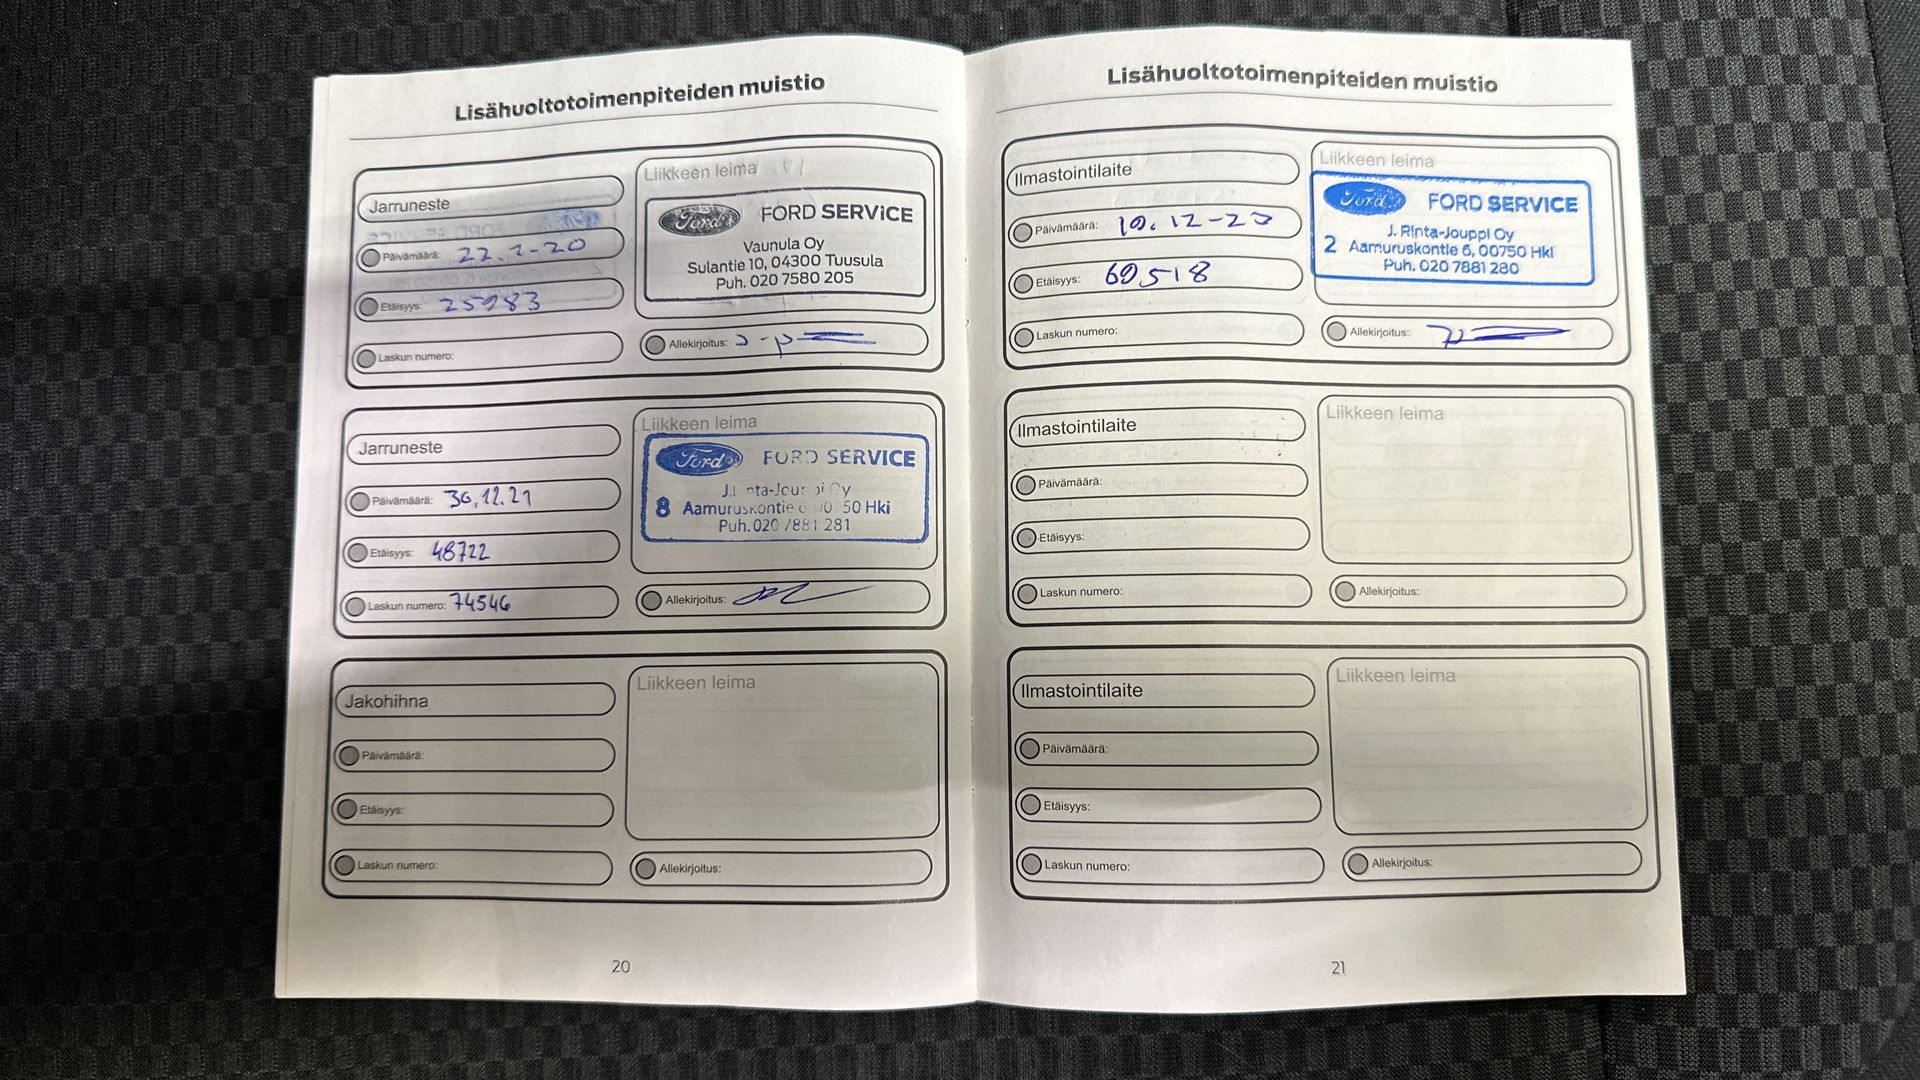 Lisähuoltotoimenpiteiden muistio
Jarruneste
Päivämäärä: 22.1-20
Etäisyys: 25983
Laskun numero:
Liikkeen leima
Ford FORD SERVICE
Vaunula Oy
Sulantie 10, 04300 Tuusula
Puh. 020 7580 205
Allekirjoitus:
Jarruneste
Päivämäärä: 30.12.21
Etäisyys: 48722
Laskun numero: 74546
Liikkeen leima
Ford FORD SERVICE
J. Rinta-Jouppi Oy
8 Aamuruskontie 6, 00750 Hki
Puh. 020 7881 281
Allekirjoitus:
Jakohihna
Päivämäärä:
Etäisyys:
Laskun numero:
Liikkeen leima
Allekirjoitus:
20
Lisähuoltotoimenpiteiden muistio
Ilmastointilaite
Päivämäärä: 19.12-23
Etäisyys: 60518
Laskun numero:
Liikkeen leima
Ford FORD SERVICE
J. Rinta-Jouppi Oy
2 Aamuruskontie 6, 00750 Hki
Puh. 020 7881 280
Allekirjoitus:
Ilmastointilaite
Päivämäärä:
Etäisyys:
Laskun numero:
Liikkeen leima
Allekirjoitus:
Ilmastointilaite
Päivämäärä:
Etäisyys:
Laskun numero:
Liikkeen leima
Allekirjoitus:
21